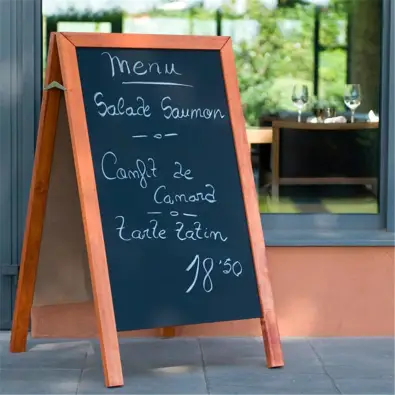 Menu
Salade Saumon
Confit de
Canard
Tarte Tatin
18'50